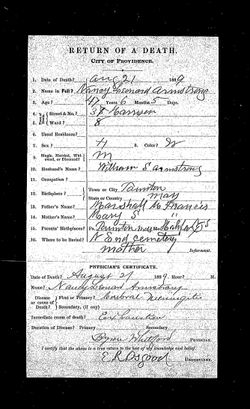 RETURN OF A DEATH,
CITY OF PROVIDENCE.
1. Date of Death? Aug 21 1889
2. Name in Full? Nancy Leonard Armstrong
3. Age? 47 Years 6 Months 5 Days.
4. Street & No.? 38 Harrison
Ward? 8
6. Usual Residence?
7. Sex? F Color? W
9. Single, Married, Widowed, or Divorced? M
10. Husband's Name? William S Armstrong
11. Occupation?
12. Birthplace? Town or City, Taunton
State or Country, Mass
13. Father's Name? Marshall Francis
14. Mother's Name? Mary S "
15. Parents' Birthplace? Taunton Mass
16. Where to be Buried? N End cemetery
mother Informant.
PHYSICIAN'S CERTIFICATE.
Date of Death? August 21 1889.
Name? Nancy Leonard Armstrong
Disease or cause of Death: First or Primary? Cerebral Meningitis
Secondary, (if any)
Immediate cause of death? Exhaustion
Duration of Disease? Primary
Secondary
Physician
I certify that the above is a true return to the best of my knowledge and belief.
E. R. Osgood